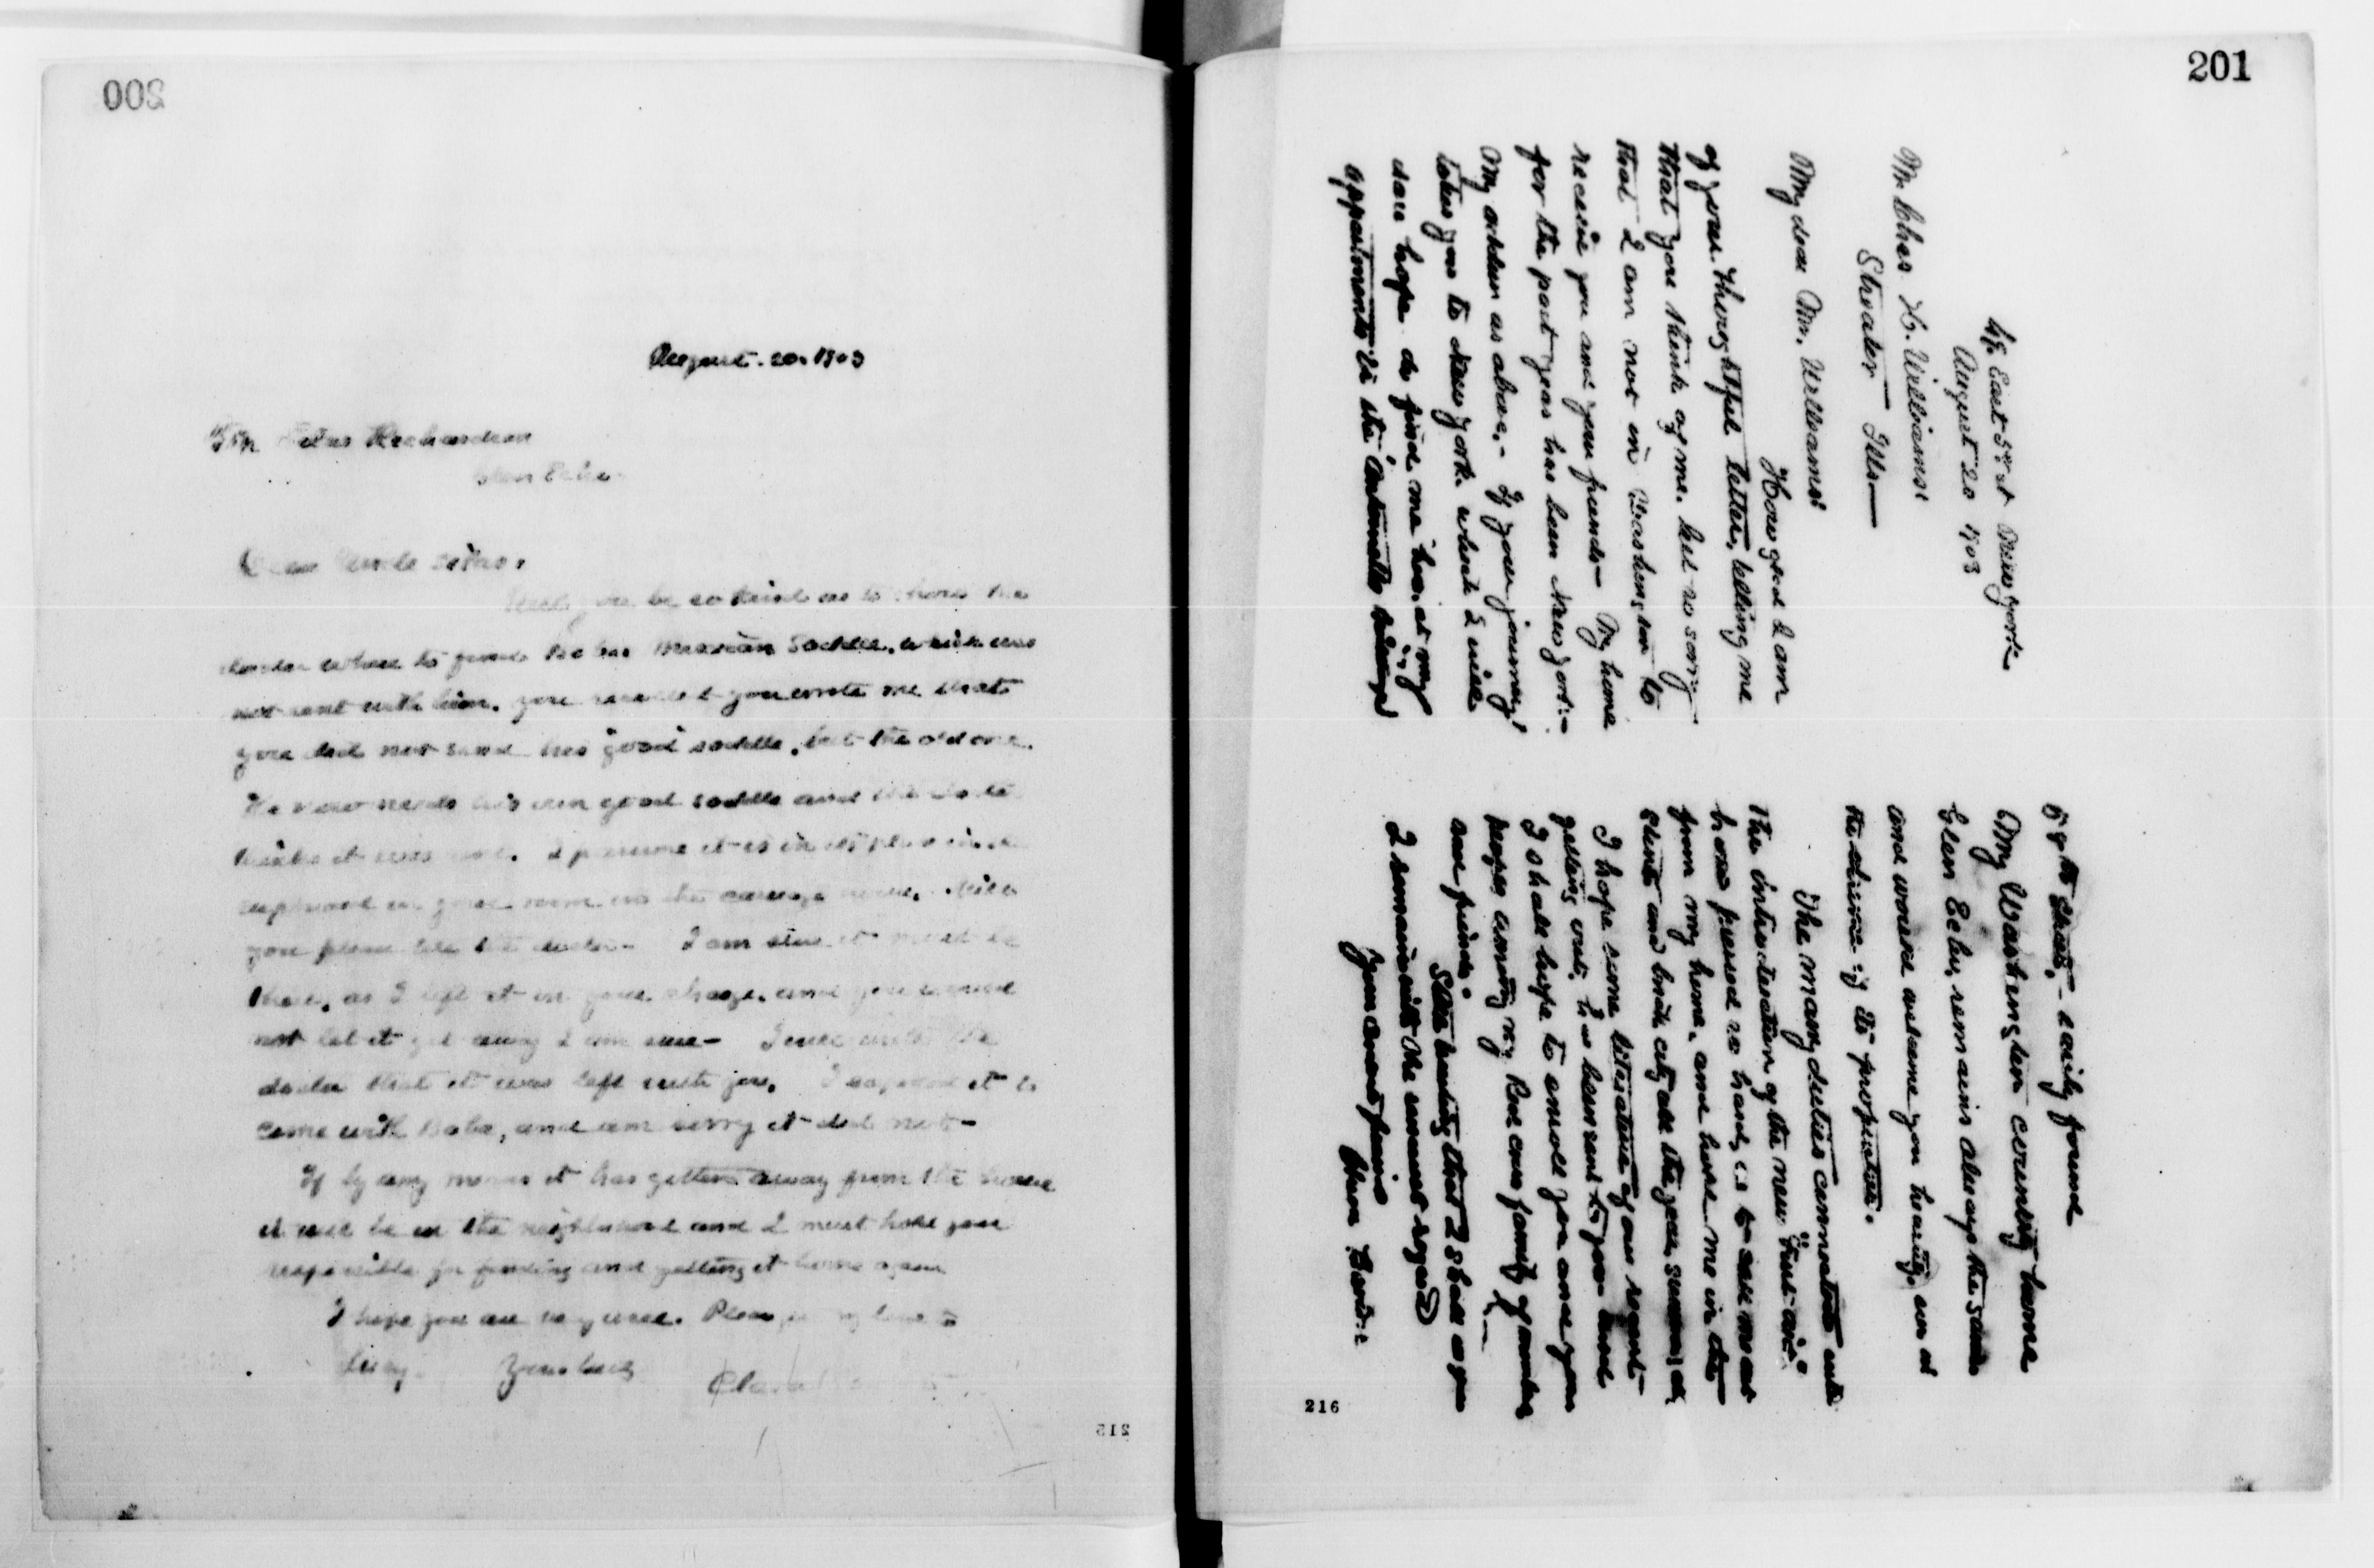 200
August. 20. 1903
Titus Richardson
Glen Echo
Dear Uncle Titus.
Will you be so kind as to show the
doctor where to find Baba's Mexican Saddle, which was
not sent with him. you wrote me that
you did not send his good saddle, but the old one.
He now needs his own good saddle and the doctor
thinks it was sent. I presume it is in its place in the
cupboard in your room in the carriage house. Will
you please tell the doctor - I am sure it must be
there, as I left it in your charge, and you would
not let it get away I am sure - I will write the
doctor that it was left with you. I supposed it to
come with Baba, and am sorry it did not -
If by any means it has gotten away from the house
it will be in the neighborhood and I must hold you
responsible for finding and getting it home again
I hope you are very well. Please my love to
Lucy. Yours truly
Clara
215
201
East 59 st New York
August 20 1903
Mr Chas H. Williams:
Streator Ills -
My dear Mr. Williams:
How glad I am
of your thoughtful letter, telling me
that you think of me. but so sorry
that I am not in Washington to
receive you and your friends - My home
for the past year has been New York -
My address as above, - If your journey
takes you to New York which I will
dare hope do find me here, at my
appartments in the
59th Street, - easily found
My Washington country home
Glen Echo, remains always the same
and would welcome you heartily even at
the
The many duties connected with
the introduction of the new "First Aid"
have pressed so hard, as to call me
from my home, and have me in the
I hope some literature of our recent
getting out, has been sent to you and
I shall hope to enroll you and your
people among my Red Cross family of
and friends.
that I shall
I remain with the regard
Your friend
Clara Barton
216